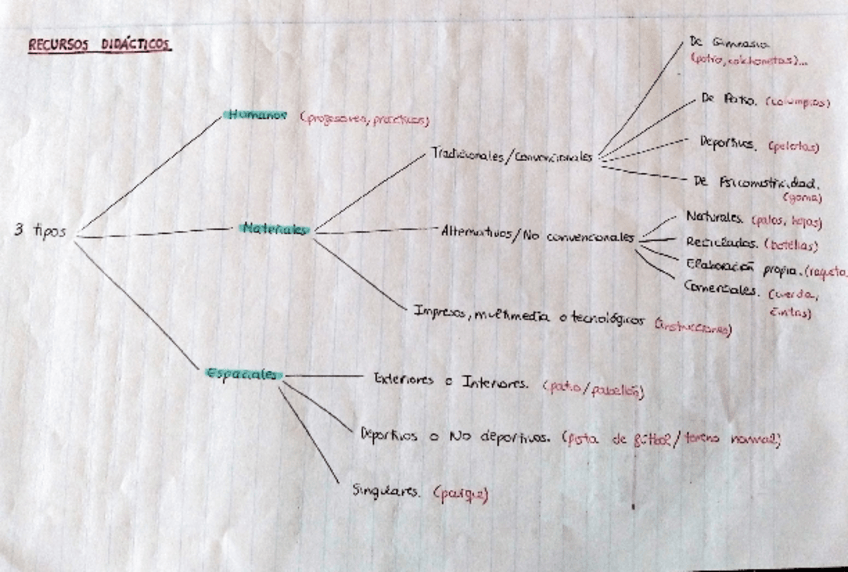 RECURSOS DIDÁCTICOS
De Gimnasio
(potro, colchonetas)...
Humanos (profesores, prácticos)
De Patio. (columpios)
Tradicionales/Convencionales
Deportivos. (pelotas)
De Psicomotricidad.
(goma)
3 tipos
Materiales
Alternativos/No convencionales
Naturales. (palos, hojas)
Reciclados. (botellas)
Elaboración propia. (raqueta
Comerciales. (cuerda,
cintas)
Impresos, multimedia o tecnológicos (instrucciones)
Espaciales
Exteriores o Interiores. (patio/pabellón)
Deportivos o No deportivos. (pista de fútbol/terreno normal)
Singulares. (parque)